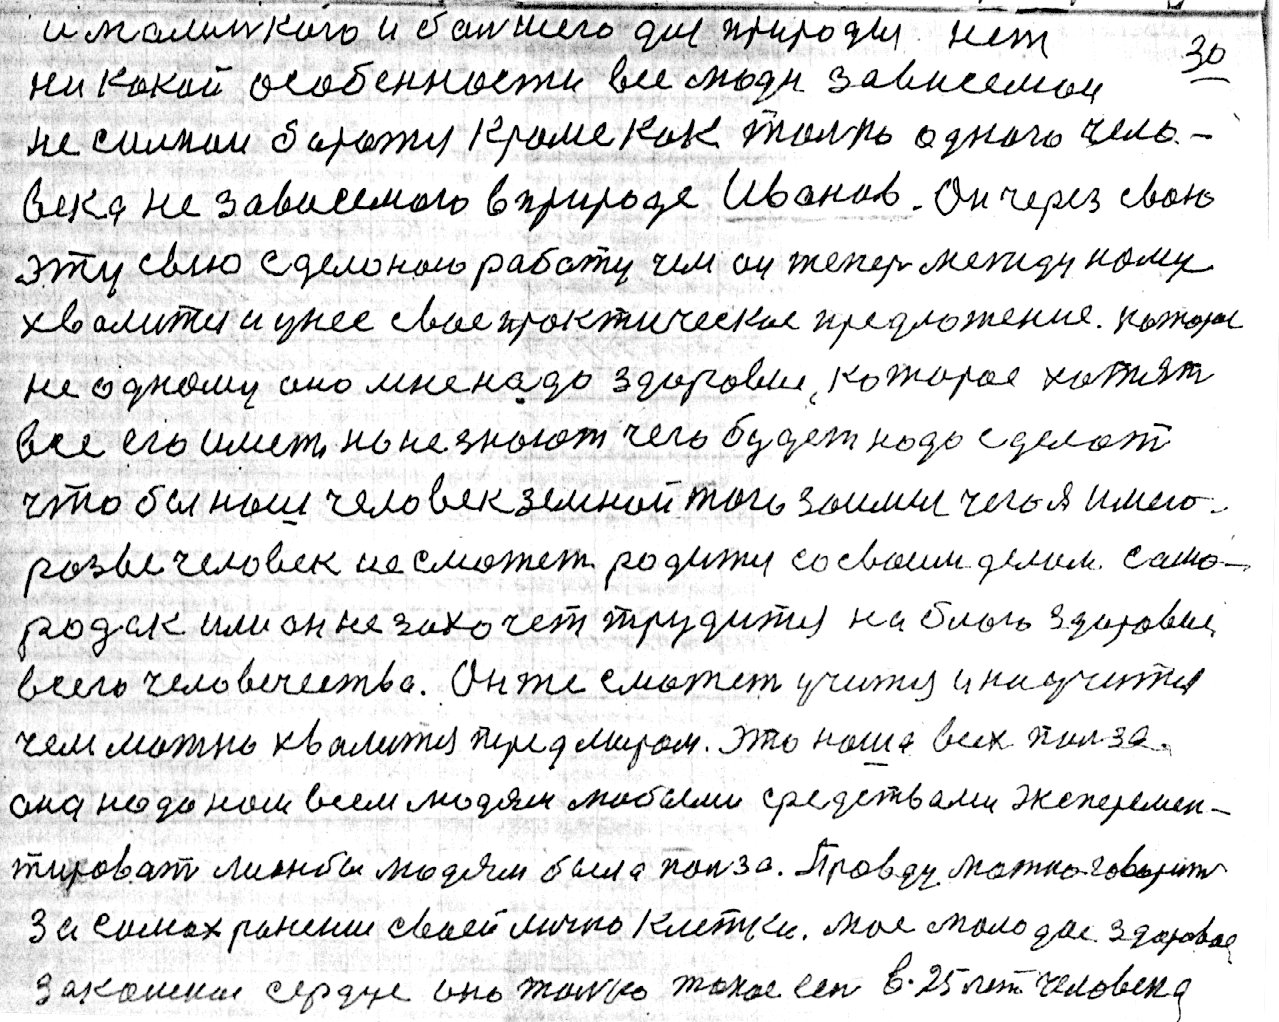 и малинкого и балшего для природы нет
30
ни какой особенности все люди зависемои
не силнои боротся кроме как толко одного чело-
века не зависемого в природе Иванов. Он через свою
эту свою сделоною работу чем он тепер между ному
хвалится и у нее свое практическое предложение. которое
не одному оно мне надо здоровие, которое хотят
все его имет, но не знают чего будет надо сделат
что бы наш человек земной того заимел чего я имею.
розве человек не сможет родится со своим делом. само-
родак или он не захочет трудится на благо здоровия
всего человечества. Он же сможет учится и научится
чем можно хвалится перед миром. это наша всех полза.
она надо нам всем людям любыми средствами эксперемен-
тироват лишбы людям была полза. Правду можно говорит
За самохранении своей лично клетки. мое молодое здоровое
заколеное сердце оно толко такое есть в 25 лет человека